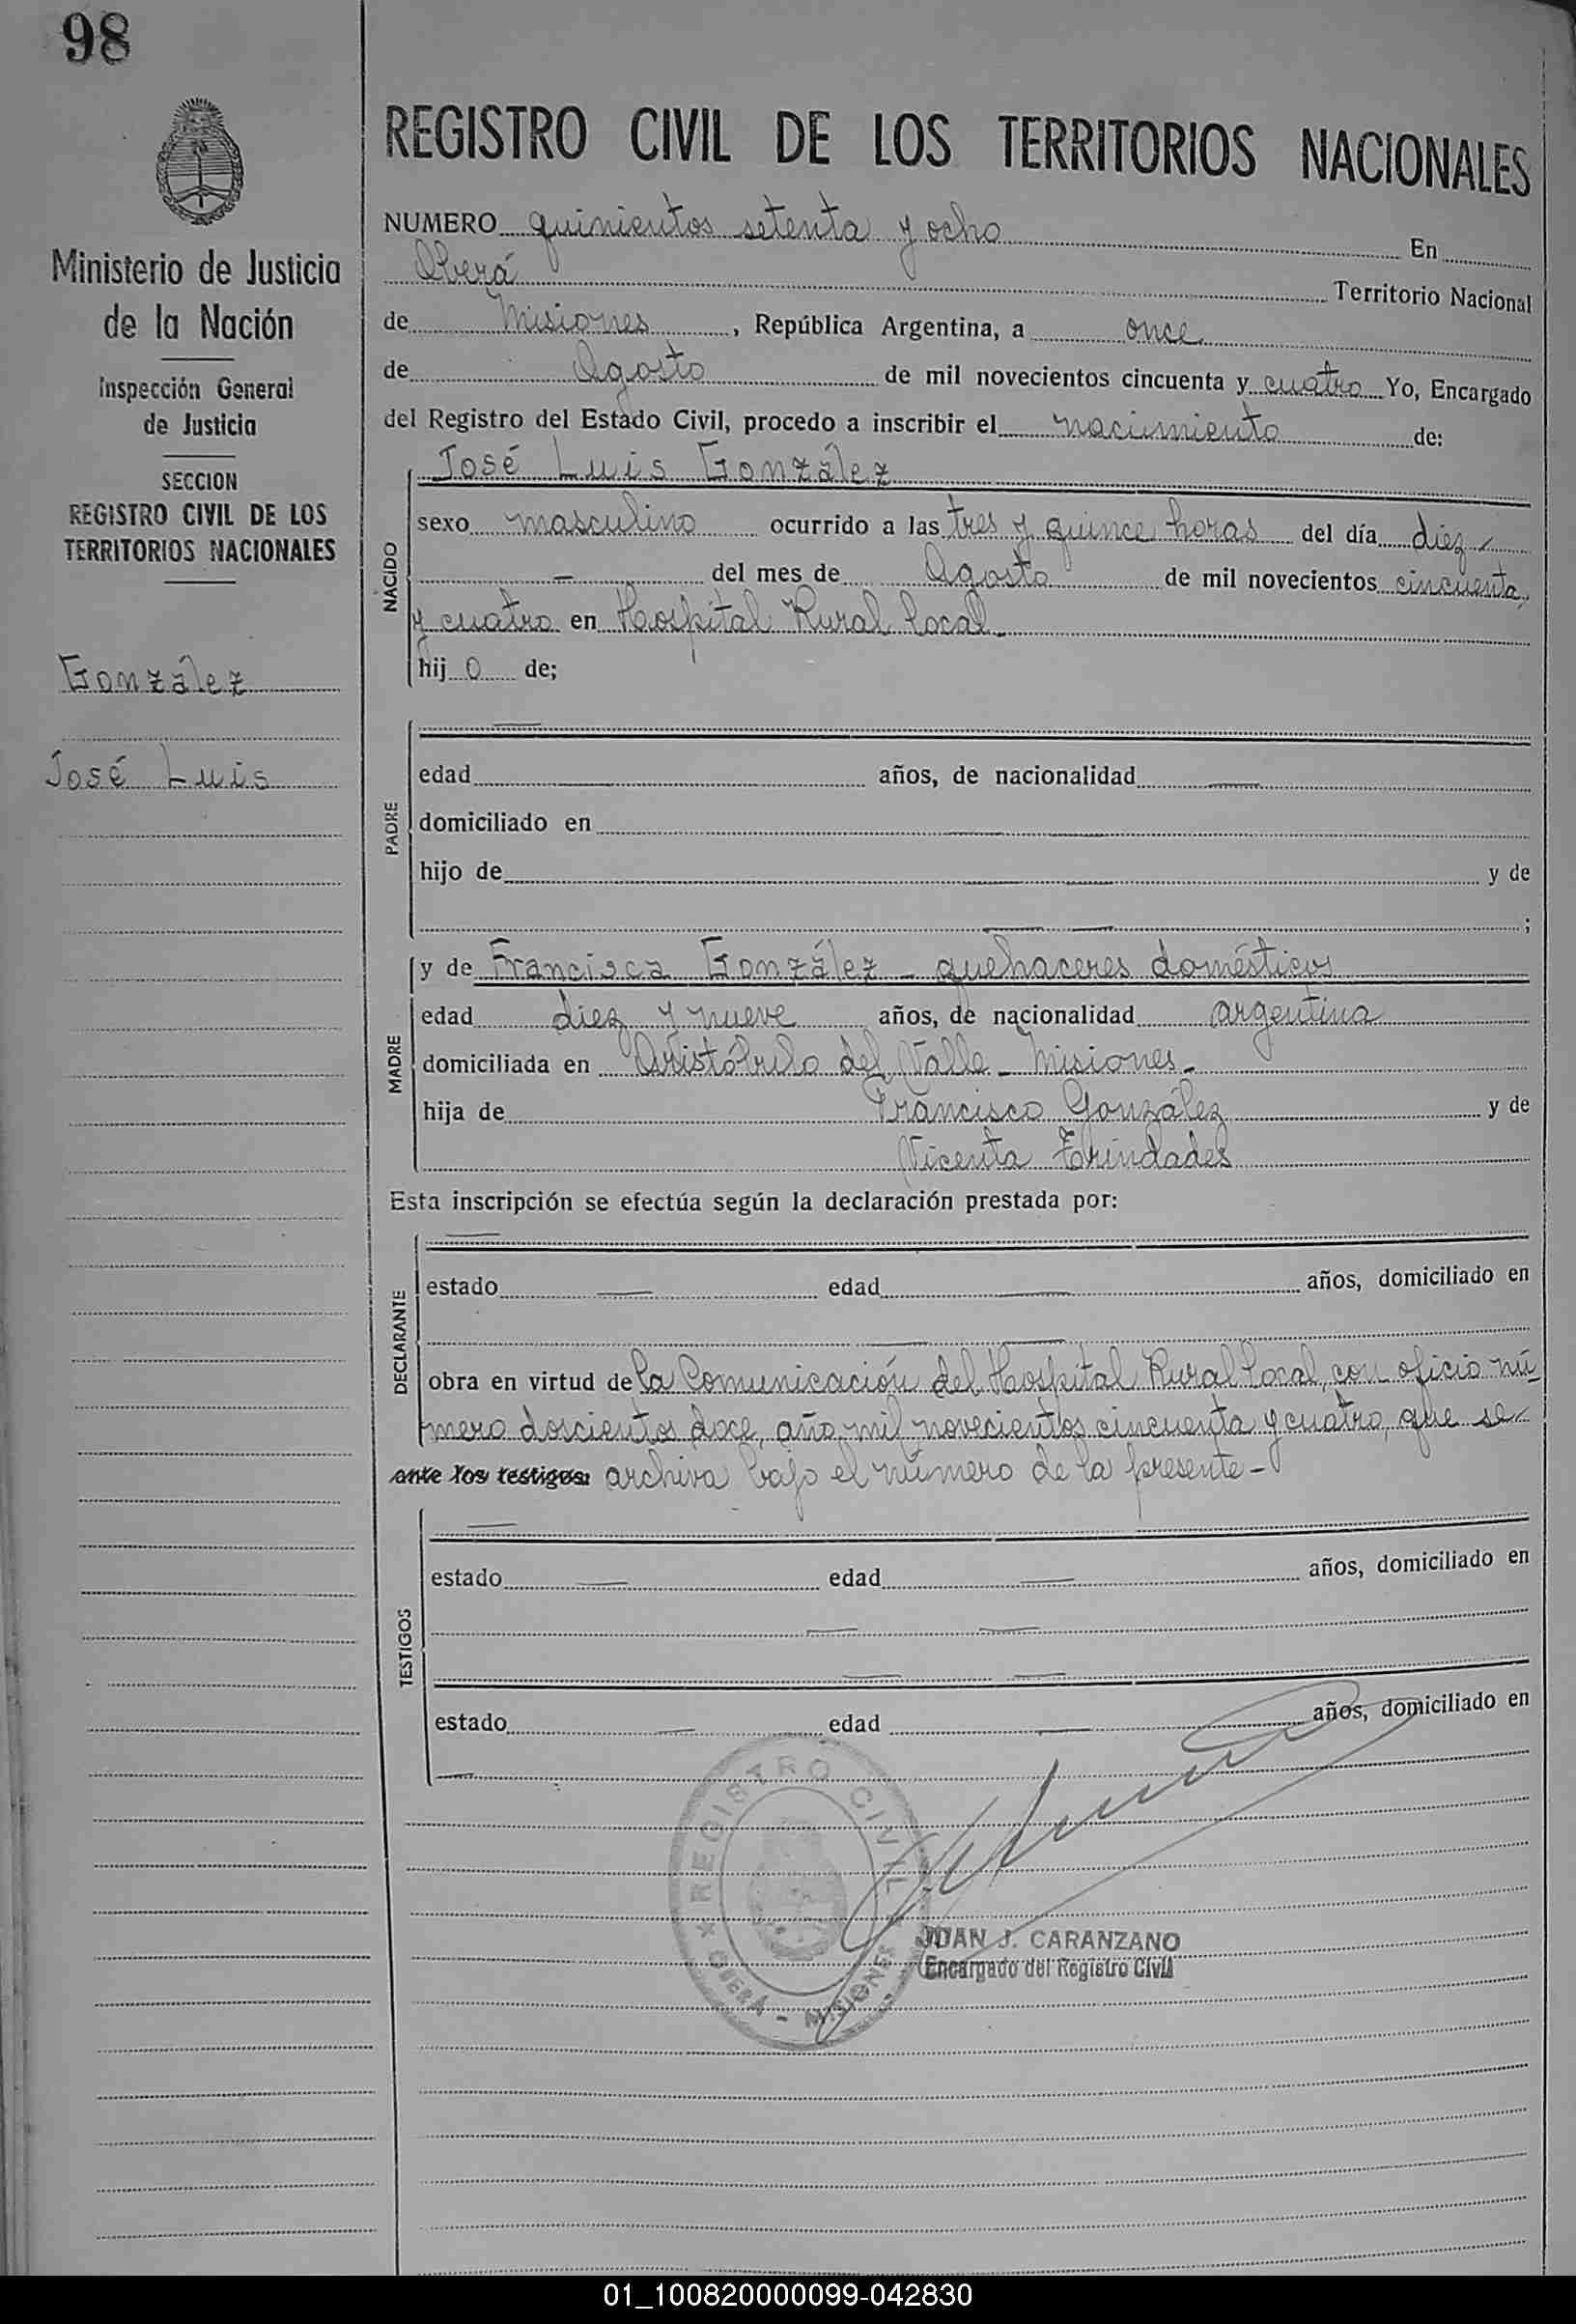 98
REGISTRO CIVIL DE LOS TERRITORIOS NACIONALES
Ministerio de Justicia
de la Nación
Inspección General
de Justicia
SECCION
REGISTRO CIVIL DE LOS
TERRITORIOS NACIONALES
González
José Luis
NUMERO quinientos setenta y ocho En
Oberá Territorio Nacional
de Misiones, República Argentina, a once
de Agosto de mil novecientos cincuenta y cuatro Yo, Encargado
del Registro del Estado Civil, procedo a inscribir el nacimiento de:
NACIDO
José Luis González
sexo masculino ocurrido a las tres y quince horas del día diez
— del mes de Agosto de mil novecientos cincuenta
y cuatro en Hospital Rural local
hijo de;
PADRE
—
edad — años, de nacionalidad —
domiciliado en —
hijo de — y de
— ;
MADRE
y de Francisca González - quehaceres domésticos
edad diez y nueve años, de nacionalidad argentina
domiciliada en Aristóbulo del Valle - Misiones -
hija de Francisco González y de
Vicenta Trindades
Esta inscripción se efectúa según la declaración prestada por:
DECLARANTE
—
estado — edad — años, domiciliado en
— —
obra en virtud de la Comunicación del Hospital Rural local, con oficio nú-
mero doscientos doce, año mil novecientos cincuenta y cuatro, que se
ante los testigos: archiva bajo el número de la presente -
TESTIGOS
—
estado — edad — años, domiciliado en
— —
— —
estado — edad — años, domiciliado en
—
REGISTRO CIVIL
OBERÁ - MISIONES
JUAN J. CARANZANO
Encargado del Registro Civil
01_100820000099-042830